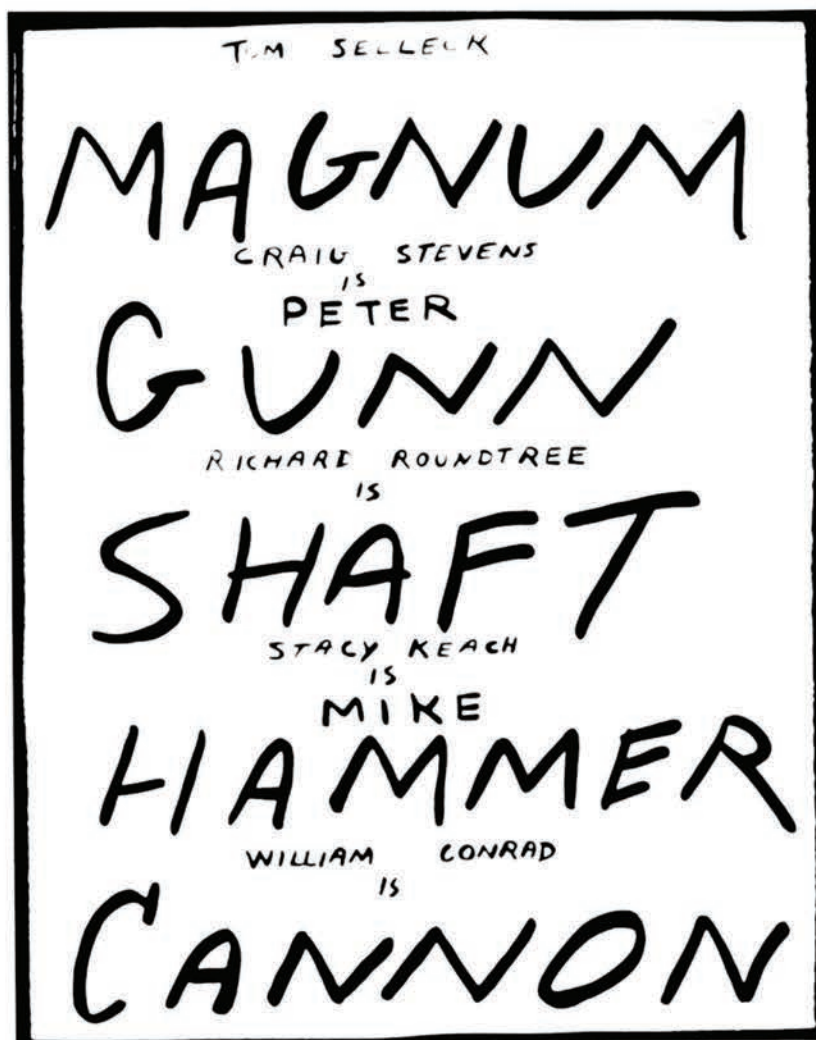 TOM SELLECK
MAGNUM
CRAIG STEVENS
IS
PETER
GUNN
RICHARD ROUNDTREE
IS
SHAFT
STACY KEACH
IS
MIKE
HAMMER
WILLIAM CONRAD
IS
CANNON